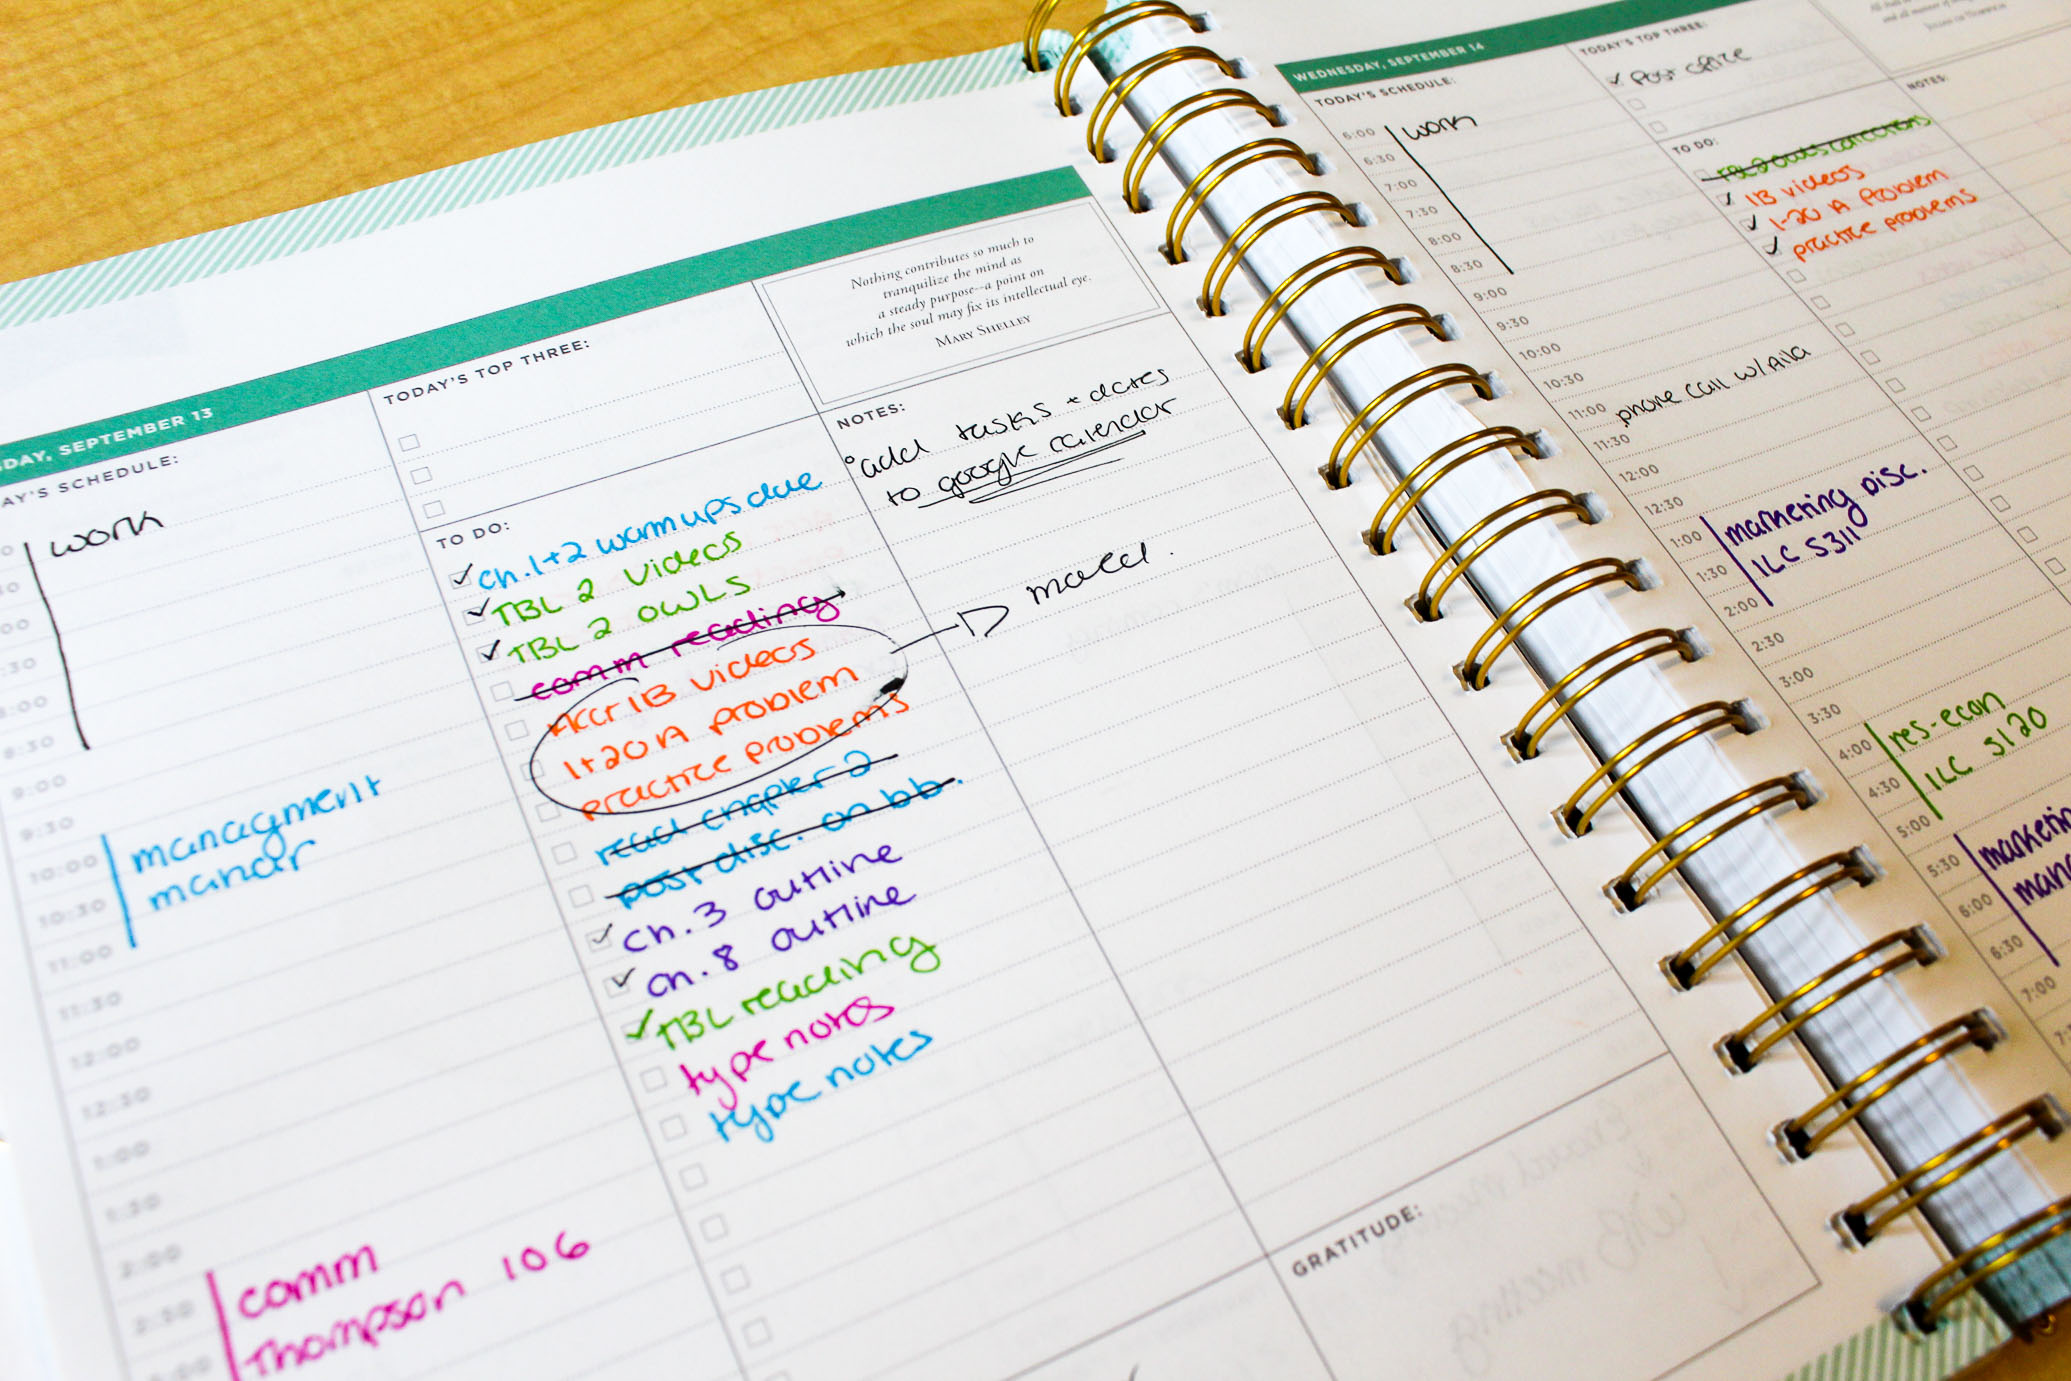 DAY, SEPTEMBER 13
AY'S SCHEDULE:
work
8:30
9:00
9:30
10:00
managment
10:30
manar
11:00
11:30
12:00
12:30
1:00
1:30
2:00
2:30
comm
Thompson 106
TODAY'S TOP THREE:
TO DO:
ch. 1+2 warmups due
TBL 2 videos
TBL 2 OWLS
comm reading
Accr 1B videos
1+20 A problem
practice problems
read chapter 2
post disc. on bb.
ch. 3 outline
ch. 8 outline
TBL reading
type notes
type notes
Nothing contributes so much to
tranquilize the mind as
a steady purpose—a point on
which the soul may fix its intellectual eye.
Mary Shelley
NOTES:
add tasks + dates
to google calendar
moved.
GRATITUDE:
WEDNESDAY, SEPTEMBER 14
TODAY'S SCHEDULE:
6:00
work
6:30
7:00
7:30
8:00
8:30
9:00
9:30
10:00
10:30
11:00
phone call w/ Aila
11:30
12:00
12:30
1:00
marketing Disc.
1:30
ILC S311
2:00
2:30
3:00
3:30
4:00
res-econ
4:30
ILC S120
5:00
5:30
marketin
6:00
mana
6:30
7:00
TODAY'S TOP THREE:
Post office
TO DO:
TBL 2 owls corrections
1B videos
1-20 A Problem
practice problems
NOTES: